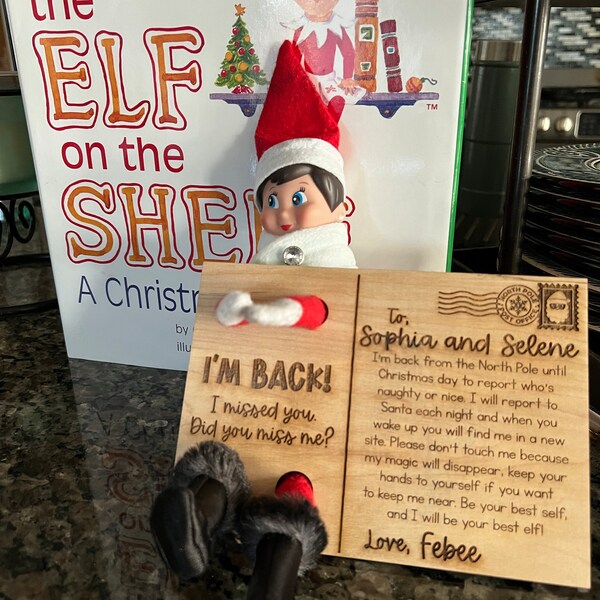 the
ELF
on the
A Christ
by
illu
TM
I'M BACK!
I missed you.
Did you miss me?
NORTH POLE
POST OFFICE
To,
Sophia and Selene
I'm back from the North Pole until
Christmas day to report who's
naughty or nice. I will report to
Santa each night and when you
wake up you will find me in a new
site. Please don't touch me because
my magic will disappear, keep your
hands to yourself if you want
to keep me near. Be your best self,
and I will be your best elf!
Love, Febee